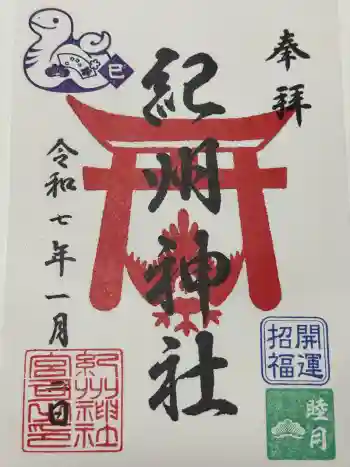 奉拝
紀州神社
令和七年一月
二日
巳
開運
招福
睦月
紀州神社